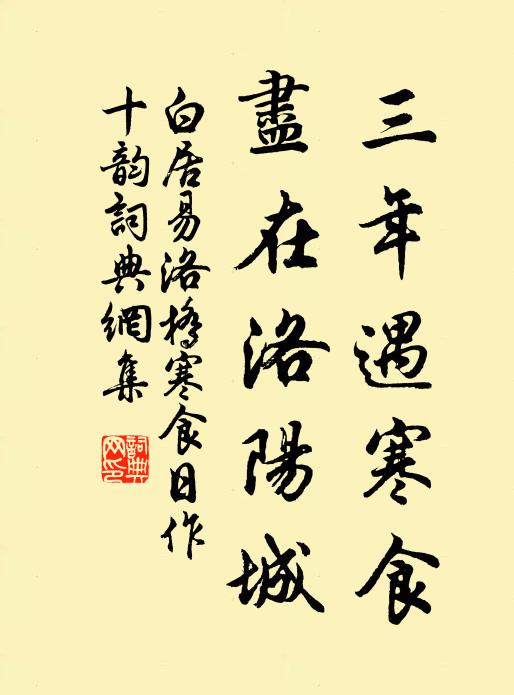 三年遇寒食
盡在洛陽城
白居易洛橋寒食日作
十韵詞典網集
詞典網印